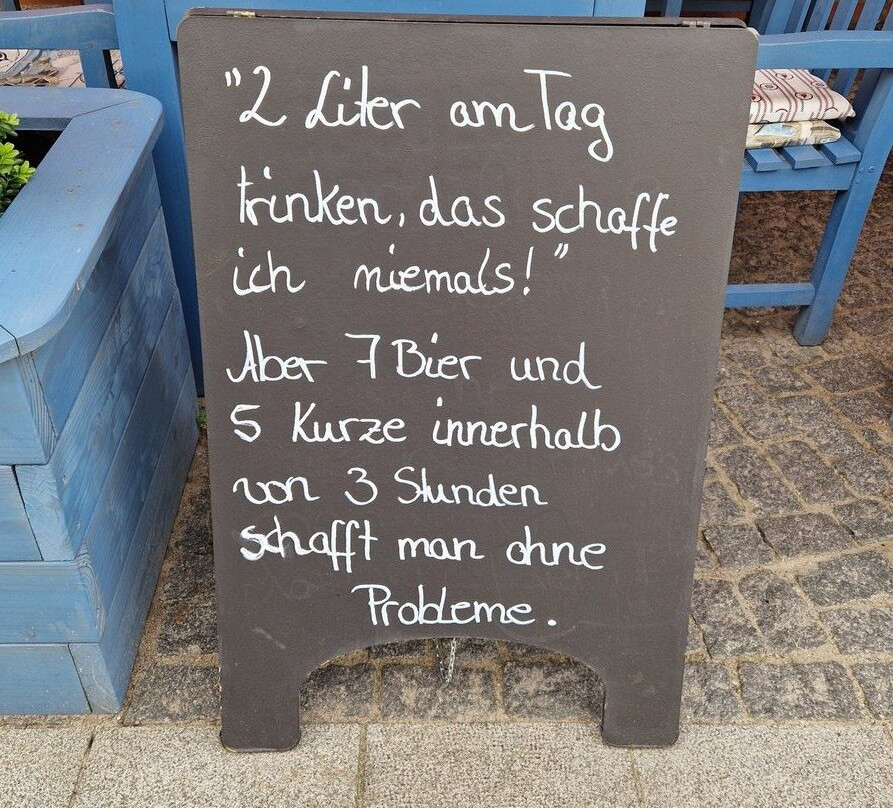 "2 Liter am Tag
trinken, das schaffe
ich niemals!"
Aber 7 Bier und
5 Kurze innerhalb
von 3 Stunden
schafft man ohne
Probleme.